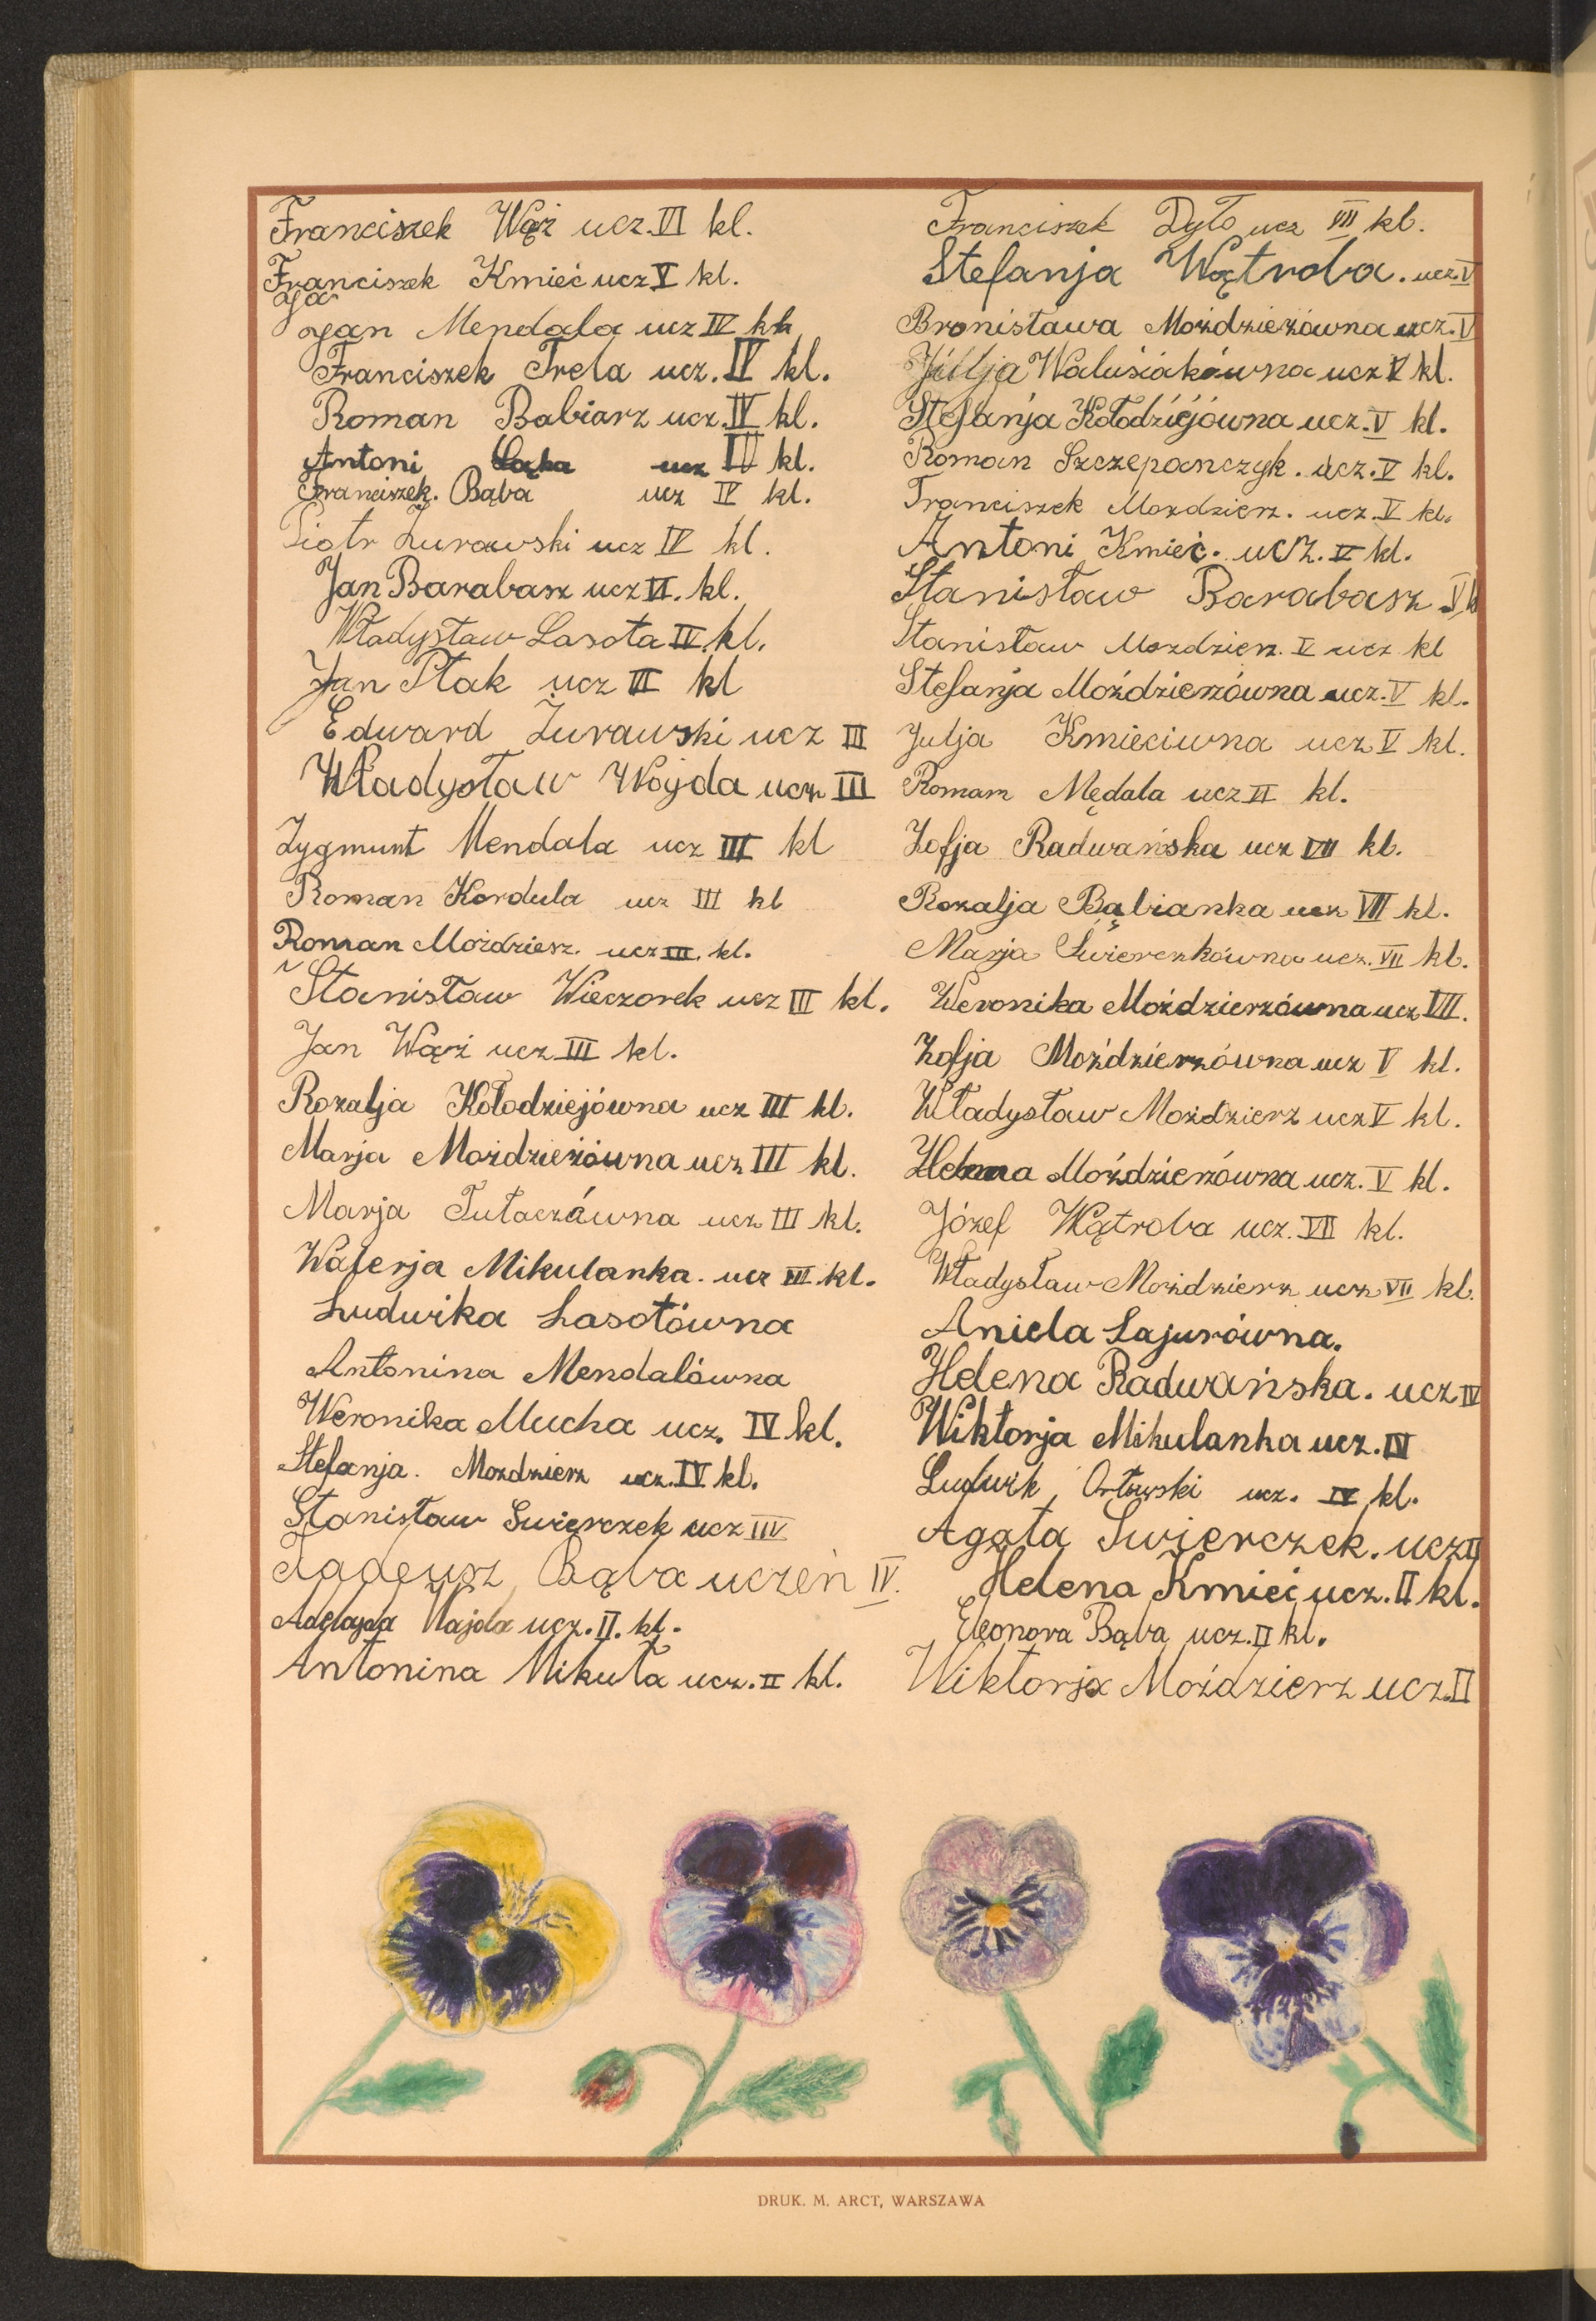 Franciszek Wąż ucz. VI kl.
Franciszek Kmieć ucz V kl.
Ja
Jan Mendala ucz IV kl.
Franciszek Trela ucz. IV kl.
Roman Babiarz ucz. IV kl.
Antoni ucz IV kl.
Franciszek. Bąba ucz IV kl.
Piotr Żurawski ucz IV kl.
Jan Barabasz ucz VI. kl.
Władysław Lasota IV kl.
Jan Ptak ucz III kl
Edward Żurawski ucz III
Władysław Wojda ucz III
Zygmunt Mendala ucz III kl
Roman Kordula ucz III kl
Roman Moździesz. ucz III. kl.
Stanisław Wieczorek ucz III kl.
Jan Wąż ucz III kl.
Rozalja Kołodziejówna ucz III kl.
Marja Moździeżówna ucz III kl.
Marja Tułaczówna ucz III kl.
Walerja Mikulanka. ucz III kl.
Ludwika Lasotówna
Antonina Mendalówna
Weronika Mucha ucz. IV kl.
Stefanja. Mozdzierz ucz. IV kl.
Stanisław Swierczek ucz IIV
Tadeusz Bąba uczeń IV.
Adelajda Wajda ucz. II. kl.
Antonina Mikuła ucz. II kl.
Franciszek Dyło ucz VII kl.
Stefanja Wątroba. ucz. V
Bronisława Moździeżówna ucz. V
Julja Walusiakówna ucz V kl.
Stefanja Kołodziejówna ucz. V kl.
Roman Szczepanczyk. ucz. V kl.
Franciszek Mozdzierz. ucz. V kl.
Antoni Kmieć. ucz. V kl.
Stanisław Barabasz V k
Stanisław Mozdzierz. V ucz kl
Stefanja Moździerzówna ucz. V kl.
Julja Kmieciwna ucz V kl.
Roman Mędala ucz VI kl.
Zofja Radwańska ucz VII kl.
Rozalja Bąbianka ucz VII kl.
Marja Świerczkówna ucz. VII kl.
Weronika Moździerzówna ucz VII.
Zofja Moździerzówna ucz V kl.
Władysław Moździerz ucz V kl.
Helena Moździerzówna ucz. V kl.
Józef Wątroba ucz. VII kl.
Władysław Moździerz ucz VII kl.
Aniela Lajurówna.
Helena Radwańska. ucz IV
Wiktorja Mikulanka ucz. IV
Ludwik Orłowski ucz. IV kl.
Agata Swierczek. ucz II
Helena Kmieć ucz. II kl.
Eleonora Bąba ucz. II kl.
Wiktorja Moździerz ucz. II
DRUK. M. ARCT, WARSZAWA